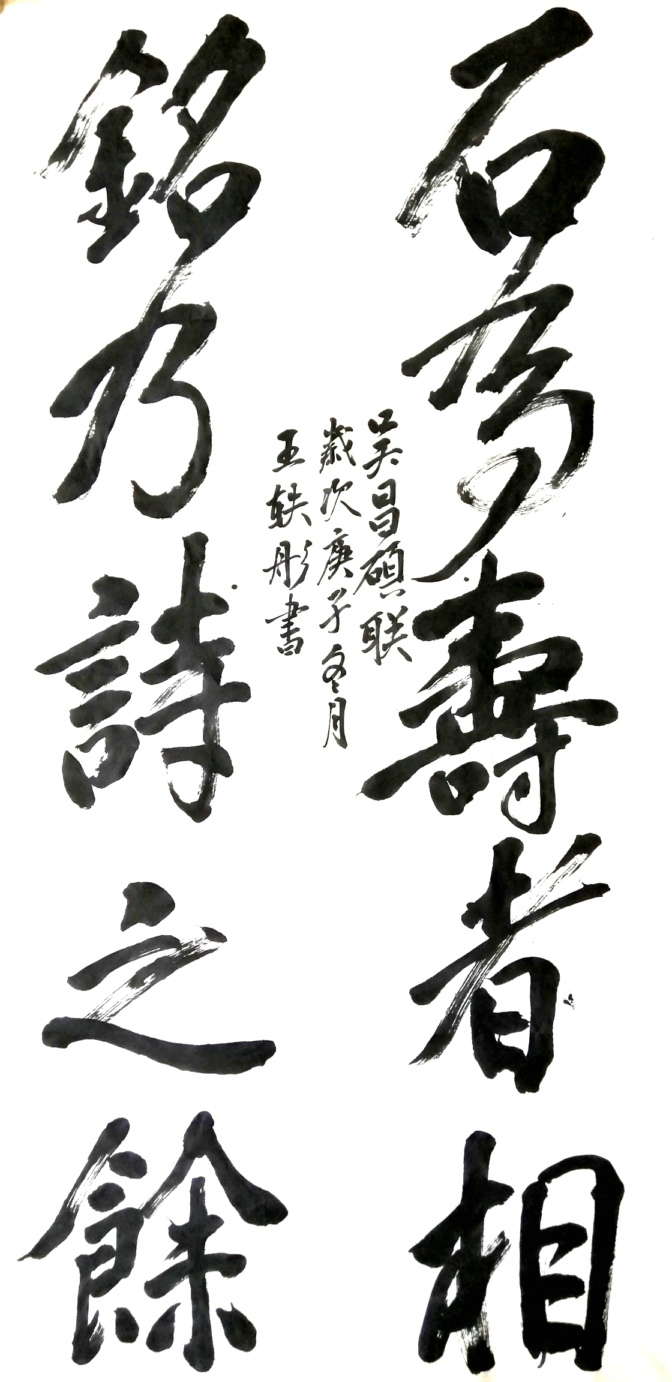 石為壽者相
銘乃詩之餘
吴昌碩联
歲次庚子冬月
王軼彤書